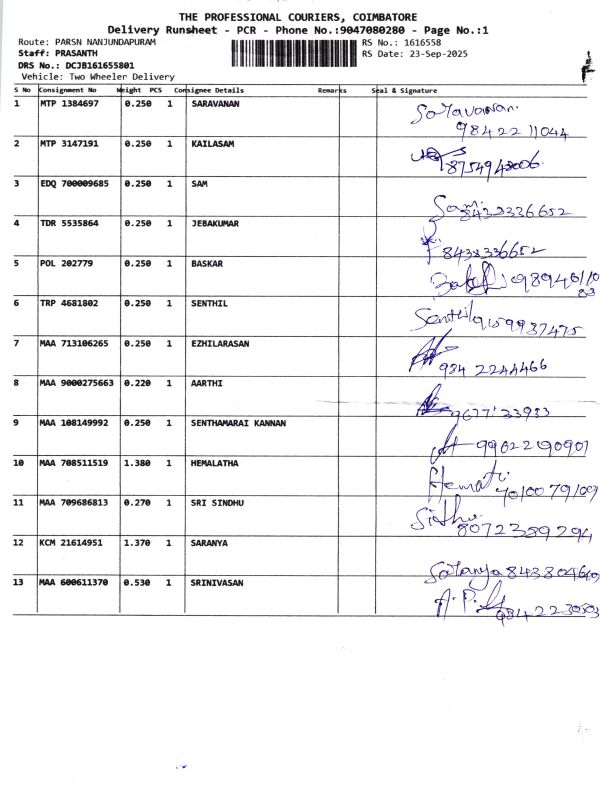 THE PROFESSIONAL COURIERS, COIMBATORE
Delivery Runsheet - PCR - Phone No.:9047080280 - Page No.:1
Route: PARSN NANJUNDAPURAM RS No.: 1616558
Staff: PRASANTH RS Date: 23-Sep-2025
DRS No.: DCJB161655801
Vehicle: Two Wheeler Delivery
S No Consignment No Weight PCS Consignee Details Remarks Seal & Signature
1 MTP 1384697 0.250 1 SARAVANAN Saravanan.
98422 11044
2 MTP 3147191 0.250 1 KAILASAM
3 EDQ 700009685 0.250 1 SAM Sam.
8438336652
4 TDR 5535864 0.250 1 JEBAKUMAR
8438336652
5 POL 202779 0.250 1 BASKAR
6 TRP 4681802 0.250 1 SENTHIL Senthil 9159937475
7 MAA 713106265 0.250 1 EZHILARASAN
984 2244466
8 MAA 9000275663 0.220 1 AARTHI
9 MAA 108149992 0.250 1 SENTHAMARAI KANNAN
10 MAA 708511519 1.380 1 HEMALATHA
11 MAA 709686813 0.270 1 SRI SINDHU
8072389294
12 KCM 21614951 1.370 1 SARANYA Saranya
13 MAA 600611370 0.530 1 SRINIVASAN A.P.